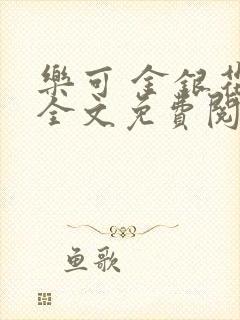 樂可 金銀花
全文免費閱
鱼歌